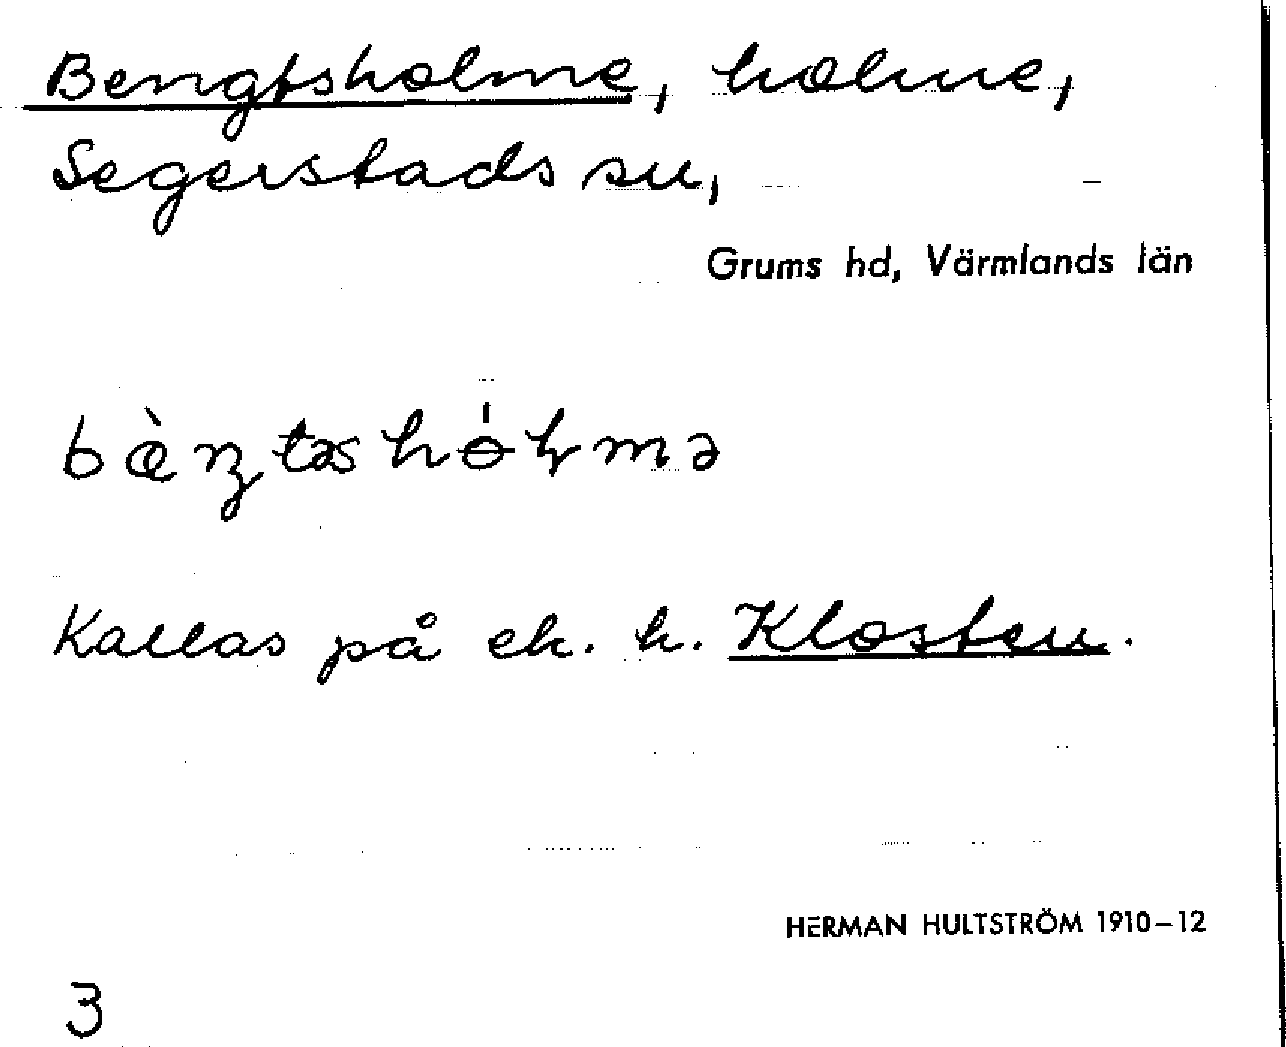 Bengtsholme, holme,
Segerstads sn,
Grums hd, Värmlands län
Kallas på ek. k. Klosten.
HERMAN HULTSTRÖM 1910–12
3